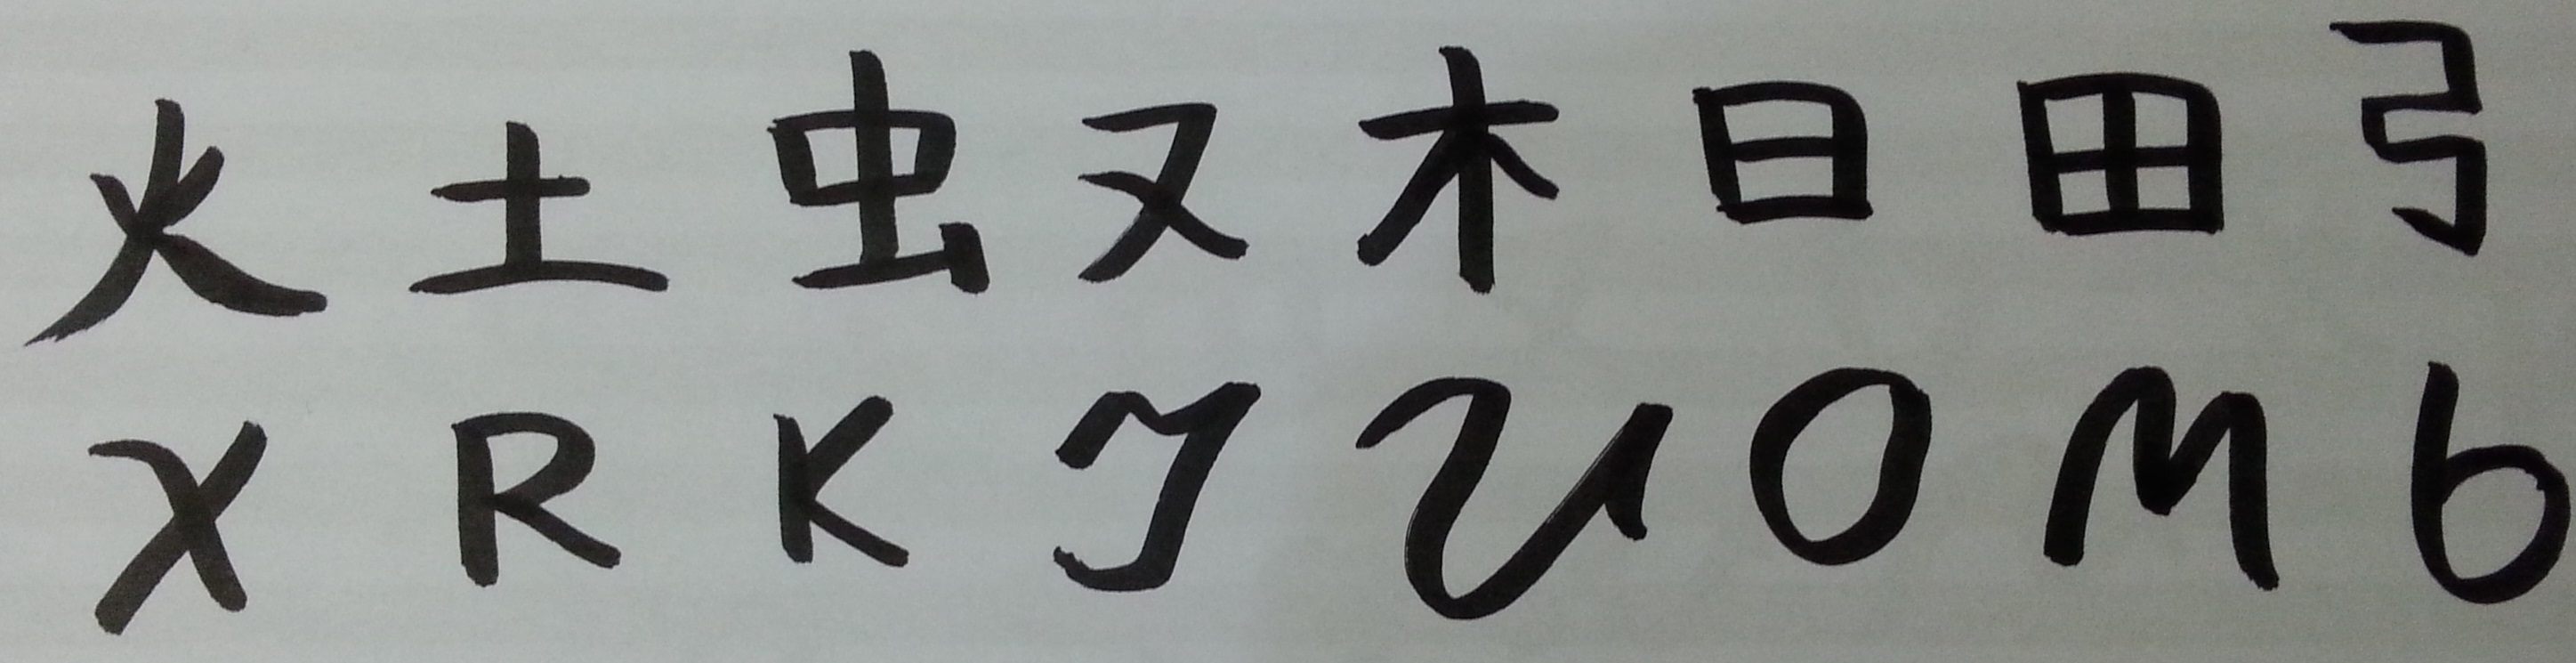 火 土 虫 又 木 日 田 弓
X R K J U O M b